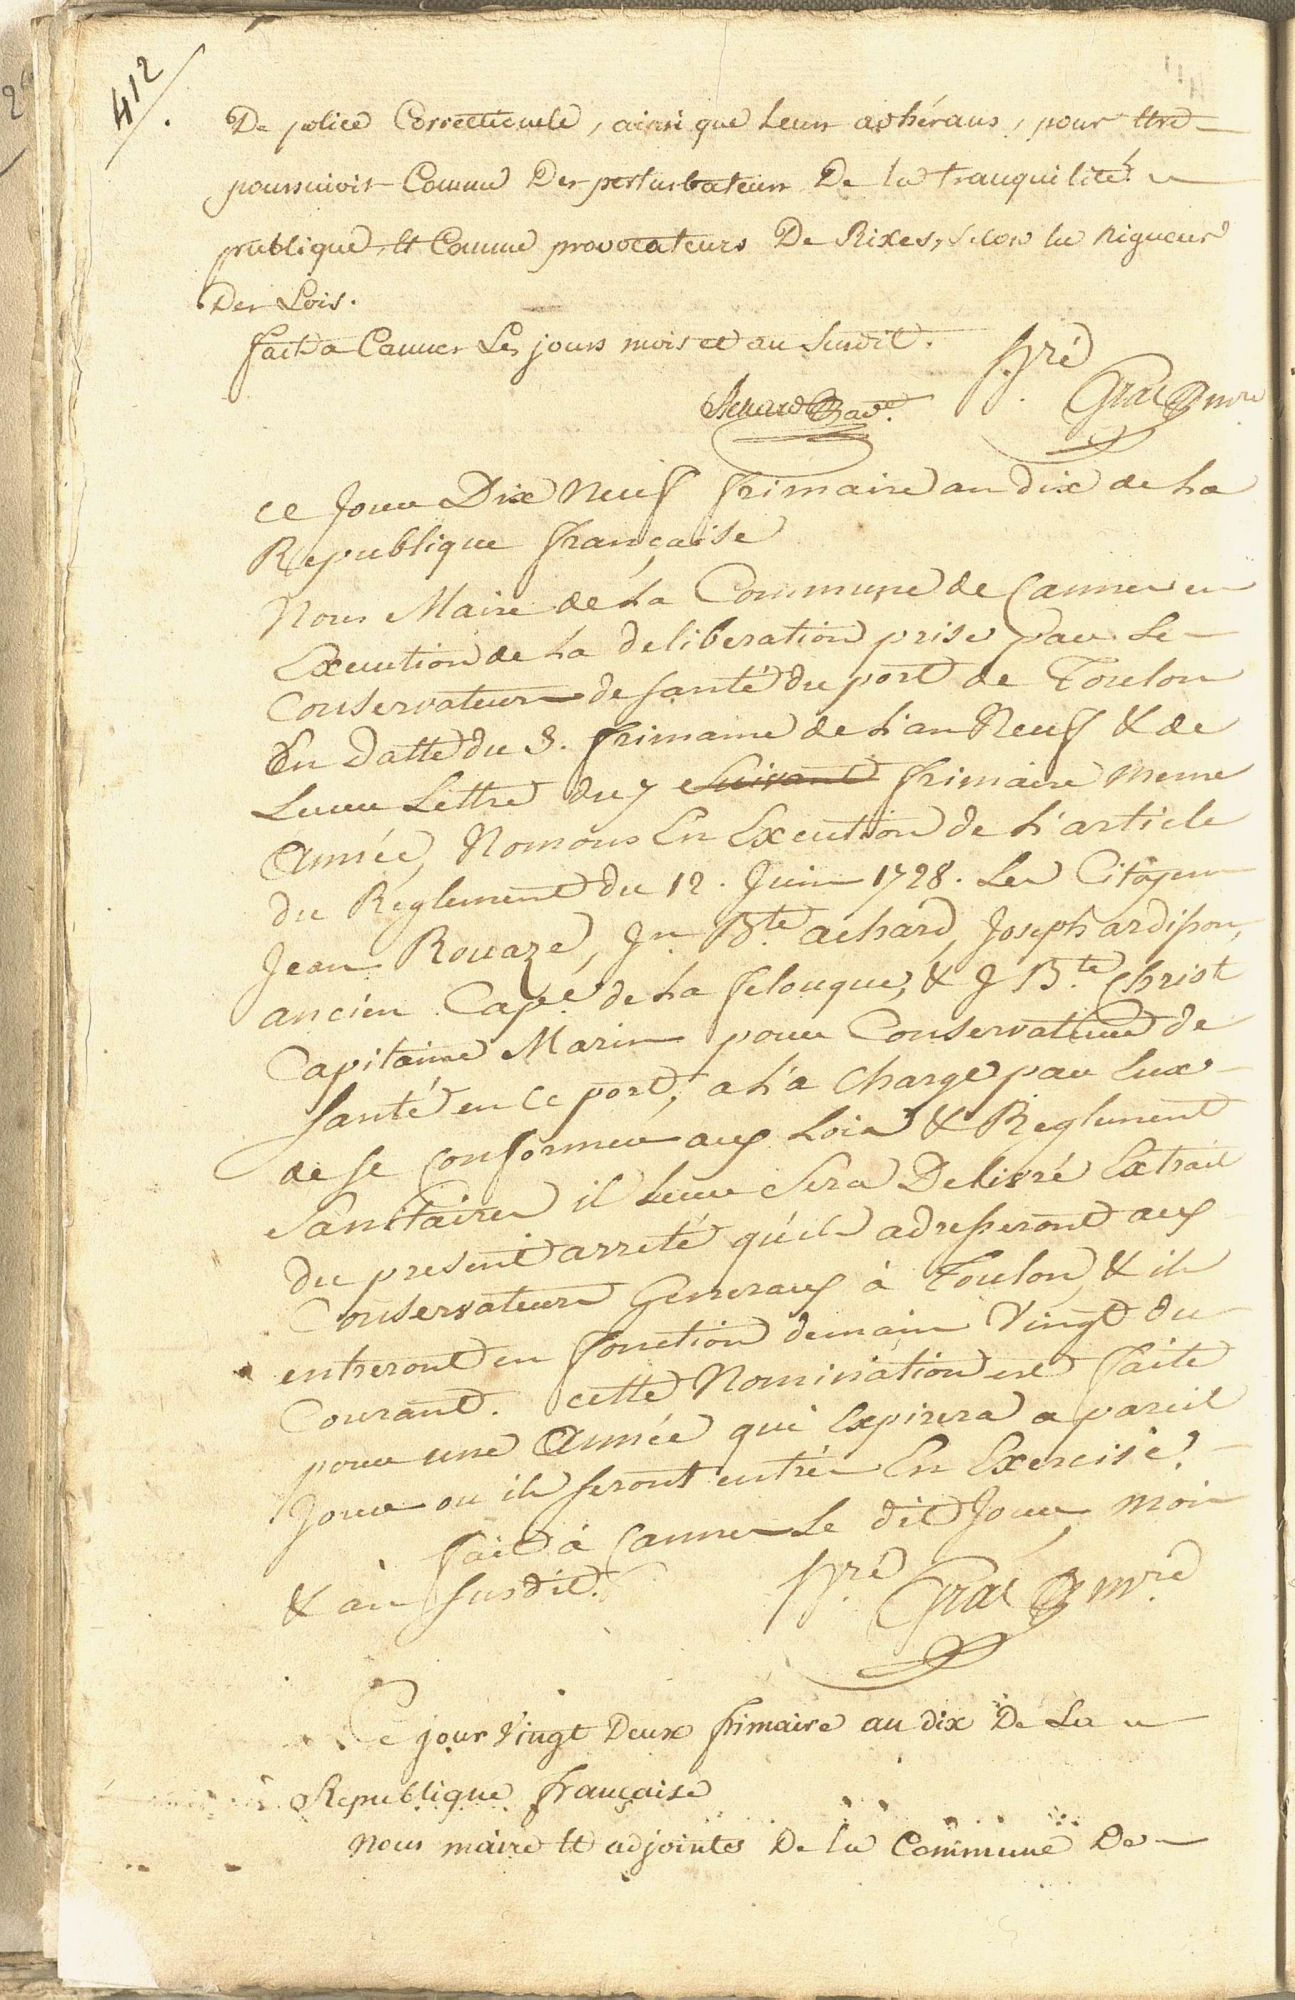 412
De police Correctionele, ainsi que Leurs adhérans, pour Etre
poursuivis Comme Des perturbateurs De la tranquilité
publique, Et Comme provocateurs De Rixes, selon la Rigueur
Des Lois.
fait a Cannes Les jours mois et an Susdit.
Gras mre
ce Jour Dix Neuf frimaire an dix de La
Republique française
Nous Maire de La Commune de Cannes en
Execution de La deliberation prise par Le
Conservateurs de santé du port de Toulon
En Datte du 3. frimaire de L'an Neuf & de
Leur Lettre du 7 Suivant frimaire meme
Année, Nomons En Execution de L'article
du Reglement du 12. Juin 1728. Les Citoyens
Jean Rouaze, Jn Bte achard, Joseph ardisson,
ancien Cape de La felouque, & J Bte Christ
Capitaine Marin pour Conservateur de
Santé en ce port, a La Charge par Eux
de se Conformer aux Lois & Reglement
Sanitaires il Leur Sera Delivré Extrait
du present arreté qu'ils adresseront aux
Conservateurs Generaux à Toulon, & ils
entreront en fonction demain Vingt du
Courant. cette Nomination est faite
pour une Année qui Expirera a pareil
Jour ou ils seront entrés En Exercise.
fait à Cannes Le dit Jour, mois
& an susdit.
Gras mre
Ce jour Vingt Deux frimaire an dix De La
Republique française
Nous maire Et adjointes De la Commune De